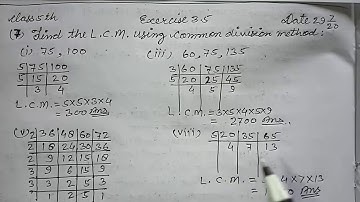 Class 5th Exercise 3.5 Date 29/7/20
(7) Find the L.C.M. using common division method:
(i) 75, 100 (iii) 60, 75, 135
5 75 100 3 60 75 135
5 15 20 5 20 25 45
3 4 4 5 9
L.C.M. = 5×5×3×4
= 300 Ans
L.C.M. = 3×5×4×5×9
= 2700 Ans
(v) 2 36 48 60 72 (viii) 5 20 35 65
2 18 24 30 36 4 7 13
2 9 12 15 18
3 9 6 15 9
3 3 2 5 3
1 2 5 1
L.C.M. = 4×7×13
= Ans